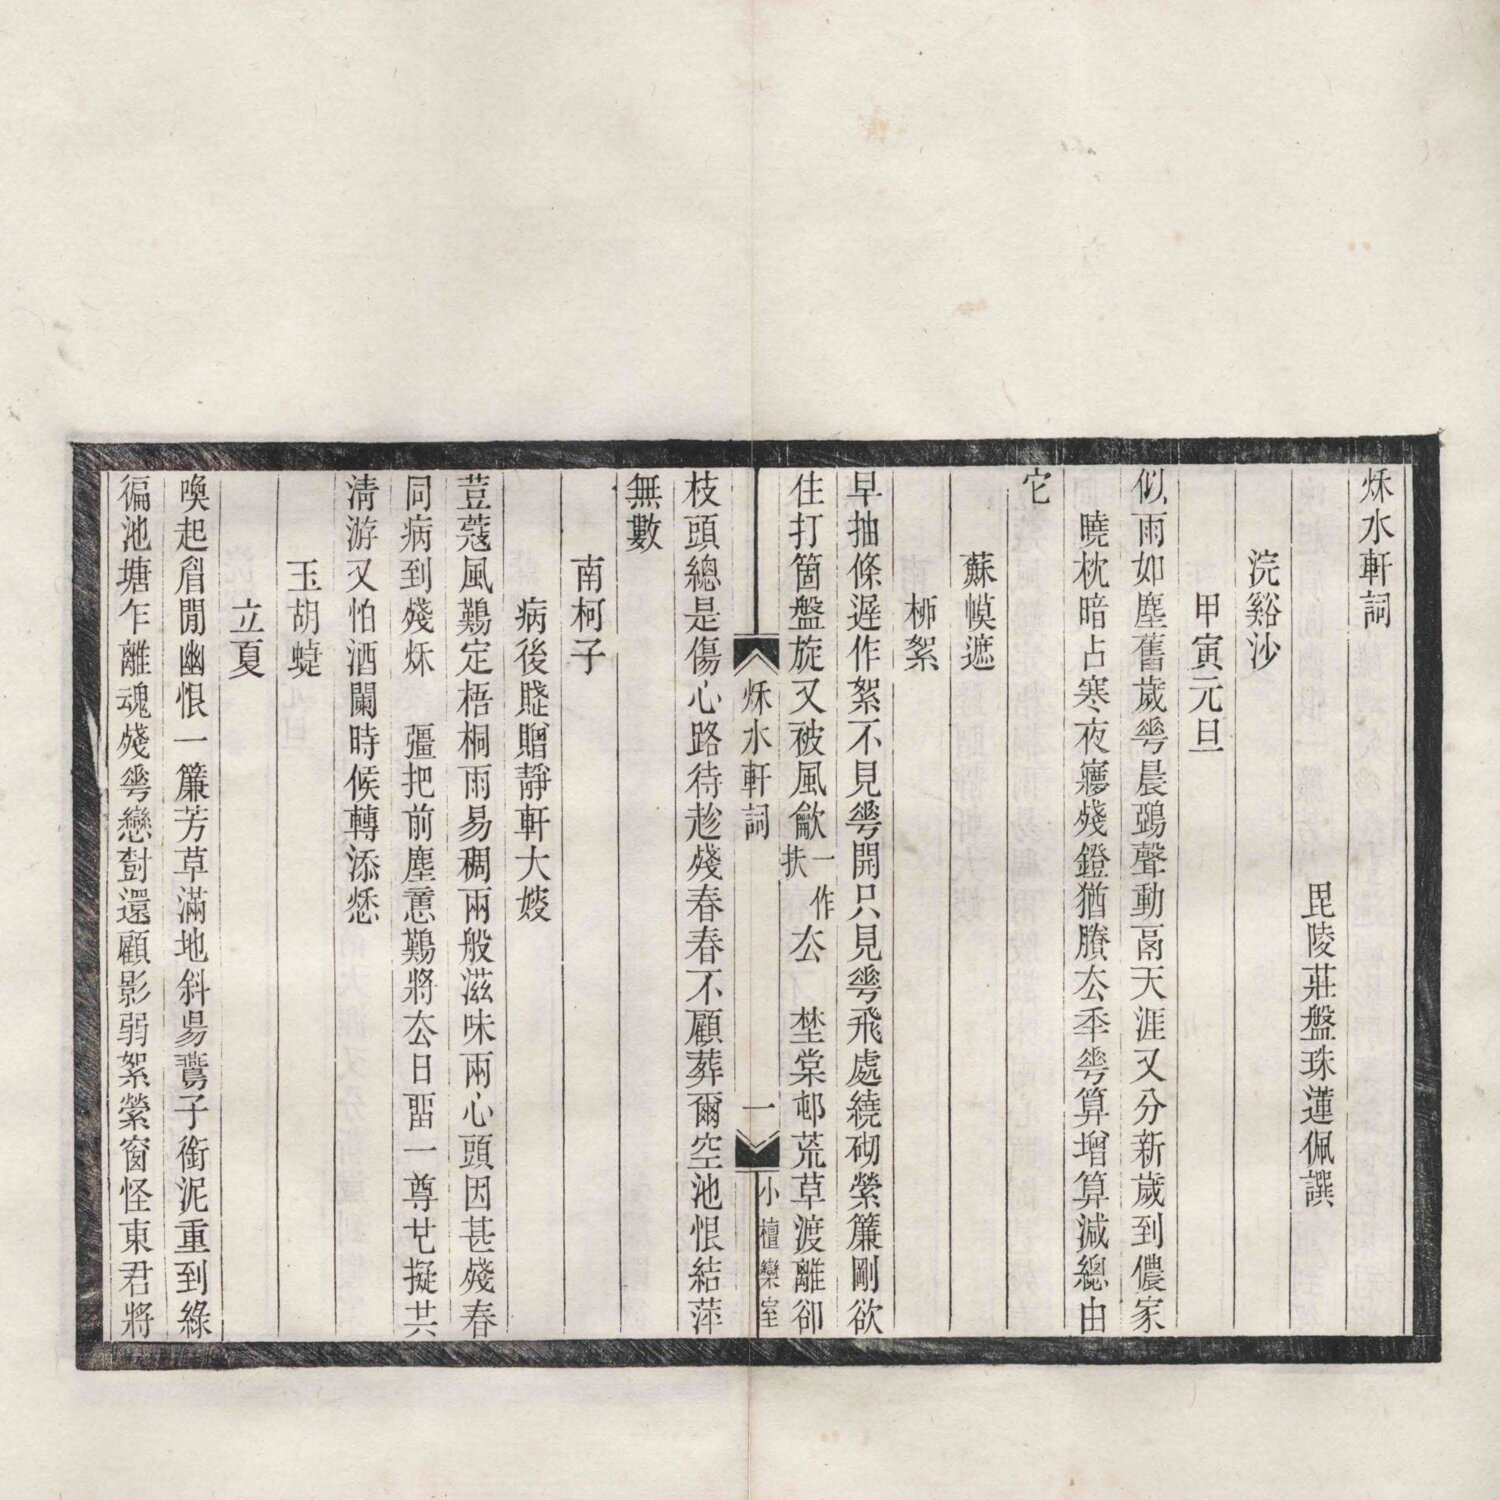 秌水軒詞
毘陵莊盤珠蓮佩譔
浣谿沙
甲寅元旦
似雨如塵舊歲䔢晨鵶聲動鬲天涯又分新歲到儂家
曉枕暗占寒夜㝱殘鐙猶賸厺秊䔢算增算減總由
它
蘇幙遮
桺絮
早抽條遲作絮不見䔢開只見䔢飛處繞砌縈簾剛欲
住打箇盤旋又被風歈一作扶厺　埜棠邨荒草渡離卻
枝頭總是傷心路待趁殘春春不顧葬爾空池恨結萍
無數
南柯子
病後牋贈靜軒大嫂
荳蔻風難定梧桐雨易稠兩般滋味兩心頭因甚殘春
同病到殘秌　彊把前塵憲難將厺日畱一尊芅擬共
清游又怕酒闌時候轉添愁
玉胡蜨
立夏
喚起睂閒幽恨一簾芳草滿地斜昜鷰子銜泥重到綠
徧池塘乍離魂殘䔢戀尌還顧影弱絮縈窗怪東君將
秌水軒詞
一
小檀欒室